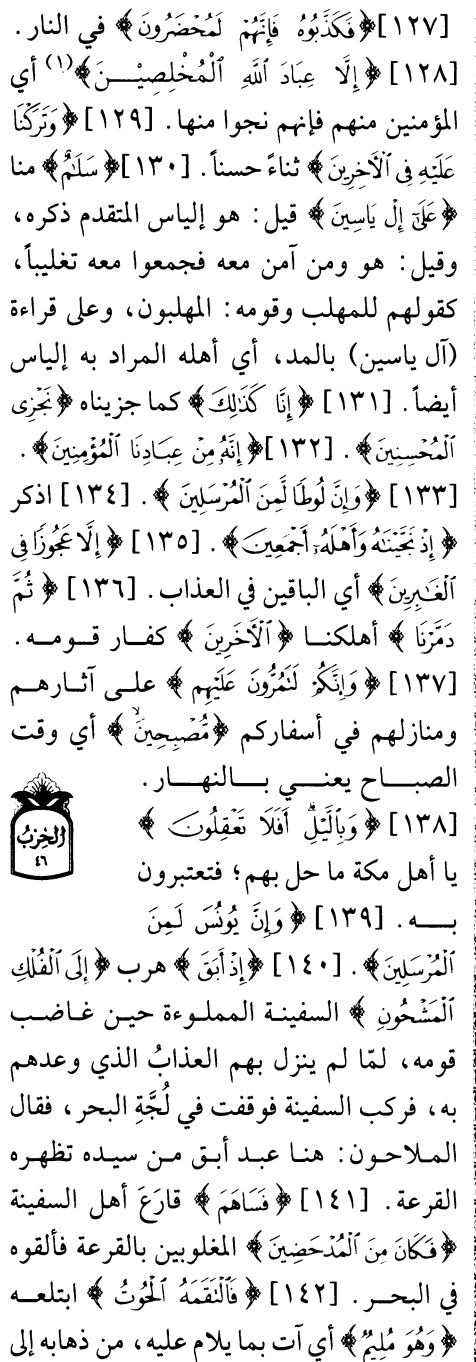 [١٢٧] ﴿فَكَذَّبُوهُ فَإِنَّهُمْ لَمُحْضَرُونَ﴾ في النار.
[١٢٨] ﴿إِلَّا عِبَادَ اللَّهِ الْمُخْلَصِينَ﴾(١) أي
المؤمنين منهم فإنهم نجوا منها. [١٢٩] ﴿وَتَرَكْنَا
عَلَيْهِ فِي الْآخِرِينَ﴾ ثناءً حسناً. [١٣٠] ﴿سَلَامٌ﴾ منا
﴿عَلَىٰ إِلْ يَاسِينَ﴾ قيل: هو إلياس المتقدم ذكره،
وقيل: هو ومن آمن معه فجمعوا معه تغليباً،
كقولهم للمهلب وقومه: المهلبون، وعلى قراءة
(آل ياسين) بالمد، أي أهله المراد به إلياس
أيضاً. [١٣١] ﴿إِنَّا كَذَٰلِكَ﴾ كما جزيناه ﴿نَجْزِي
الْمُحْسِنِينَ﴾. [١٣٢] ﴿إِنَّهُ مِنْ عِبَادِنَا الْمُؤْمِنِينَ﴾.
[١٣٣] ﴿وَإِنَّ لُوطًا لَّمِنَ الْمُرْسَلِينَ﴾. [١٣٤] اذكر
﴿إِذْ نَجَّيْنَاهُ وَأَهْلَهُ أَجْمَعِينَ﴾. [١٣٥] ﴿إِلَّا عَجُوزًا فِي
الْغَابِرِينَ﴾ أي الباقين في العذاب. [١٣٦] ﴿ثُمَّ
دَمَّرْنَا﴾ أهلكنا ﴿الْآخَرِينَ﴾ كفار قومه.
[١٣٧] ﴿وَإِنَّكُمْ لَتَمُرُّونَ عَلَيْهِم﴾ على آثارهم
ومنازلهم في أسفاركم ﴿مُّصْبِحِينَ﴾ أي وقت
الصباح يعني بالنهار.
[١٣٨] ﴿وَبِاللَّيْلِ ۗ أَفَلَا تَعْقِلُونَ﴾
يا أهل مكة ما حل بهم؛ فتعتبرون
به. [١٣٩] ﴿وَإِنَّ يُونُسَ لَمِنَ
الحزب
٤٦
الْمُرْسَلِينَ﴾. [١٤٠] ﴿إِذْ أَبَقَ﴾ هرب ﴿إِلَى الْفُلْكِ
الْمَشْحُونِ﴾ السفينة المملوءة حين غاضب
قومه، لمّا لم ينزل بهم العذابُ الذي وعدهم
به، فركب السفينة فوقفت في لُجَّةِ البحر، فقال
الملاحون: هنا عبد أبق من سيده تظهره
القرعة. [١٤١] ﴿فَسَاهَمَ﴾ قارَعَ أهل السفينة
﴿فَكَانَ مِنَ الْمُدْحَضِينَ﴾ المغلوبين بالقرعة فألقوه
في البحر. [١٤٢] ﴿فَالْتَقَمَهُ الْحُوتُ﴾ ابتلعه
﴿وَهُوَ مُلِيمٌ﴾ أي آت بما يلام عليه، من ذهابه إلى